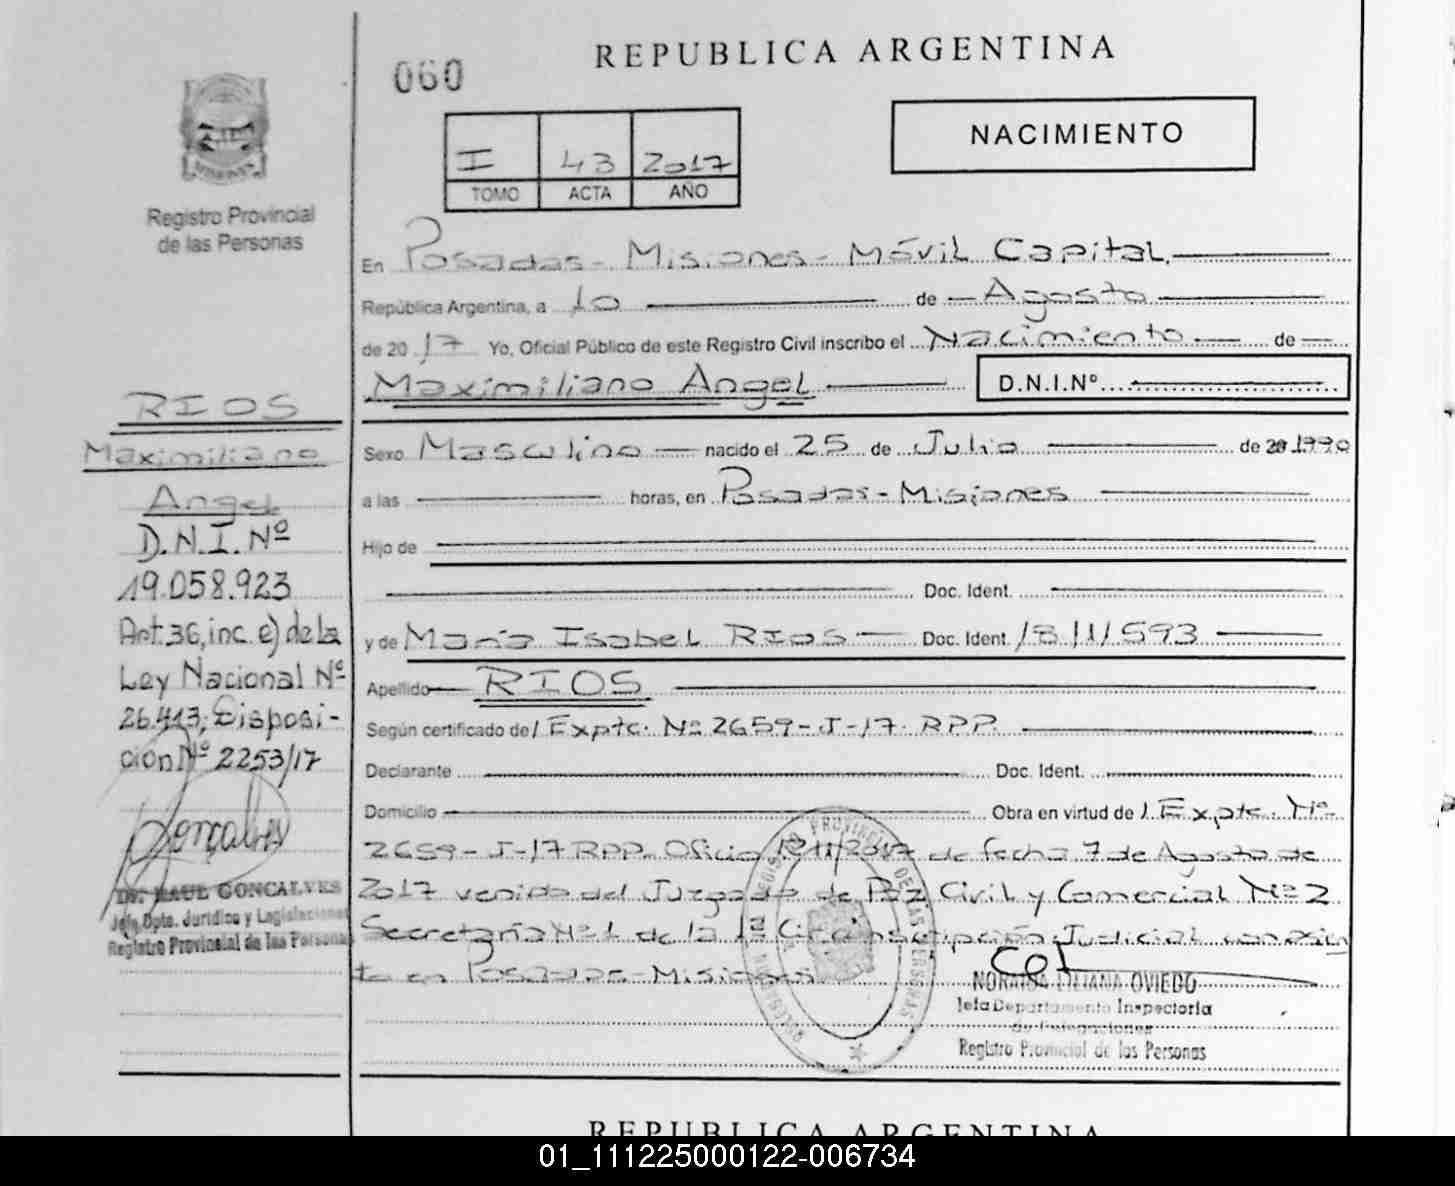 REPUBLICA ARGENTINA
060
NACIMIENTO
I 43 2017
TOMO ACTA AÑO
Registro Provincial
de las Personas
En Posadas - Misiones - Móvil Capital.
República Argentina, a 10 de Agosto
de 2017 Yo, Oficial Público de este Registro Civil inscribo el Nacimiento de
Maximiliano Angel D.N.I.Nº
RIOS
Maximiliano
Angel
D.N.I. Nº
19.058.923
Art.36,inc. e) de la
Ley Nacional Nº
26.413; Disposi-
ción Nº 2253/17
Gonçalves
Dr. RAUL GONCALVES
Jefe Dpto. Jurídico y Legislacional
Registro Provincial de las Personas
Sexo Masculino nacido el 25 de Julio de 20 1990
a las horas, en Posadas - Misiones
Hijo de
Doc. Ident.
y de María Isabel RIOS Doc. Ident. 18.111.593
Apellido RIOS
Según certificado de / Expte. Nº 2659-J-17. RPP.
Declarante Doc. Ident.
Domicilio Obra en virtud de / Expte. Nº
2659-J-17 RPP. Oficio /2017 de fecha 7 de Agosto de
2017 venido del Juzgado de Paz Civil y Comercial Nº 2
Secretaría Nº 1 de la 1ª Circunscripción Judicial con asien
to en Posadas - Misiones
NORAIDA LILIANA OVIEDO
Jefa Departamento Inspectoría
de Delegaciones
Registro Provincial de las Personas
REGISTRO PROVINCIAL DE LAS PERSONAS
REPUBLICA ARGENTINA
01_111225000122-006734